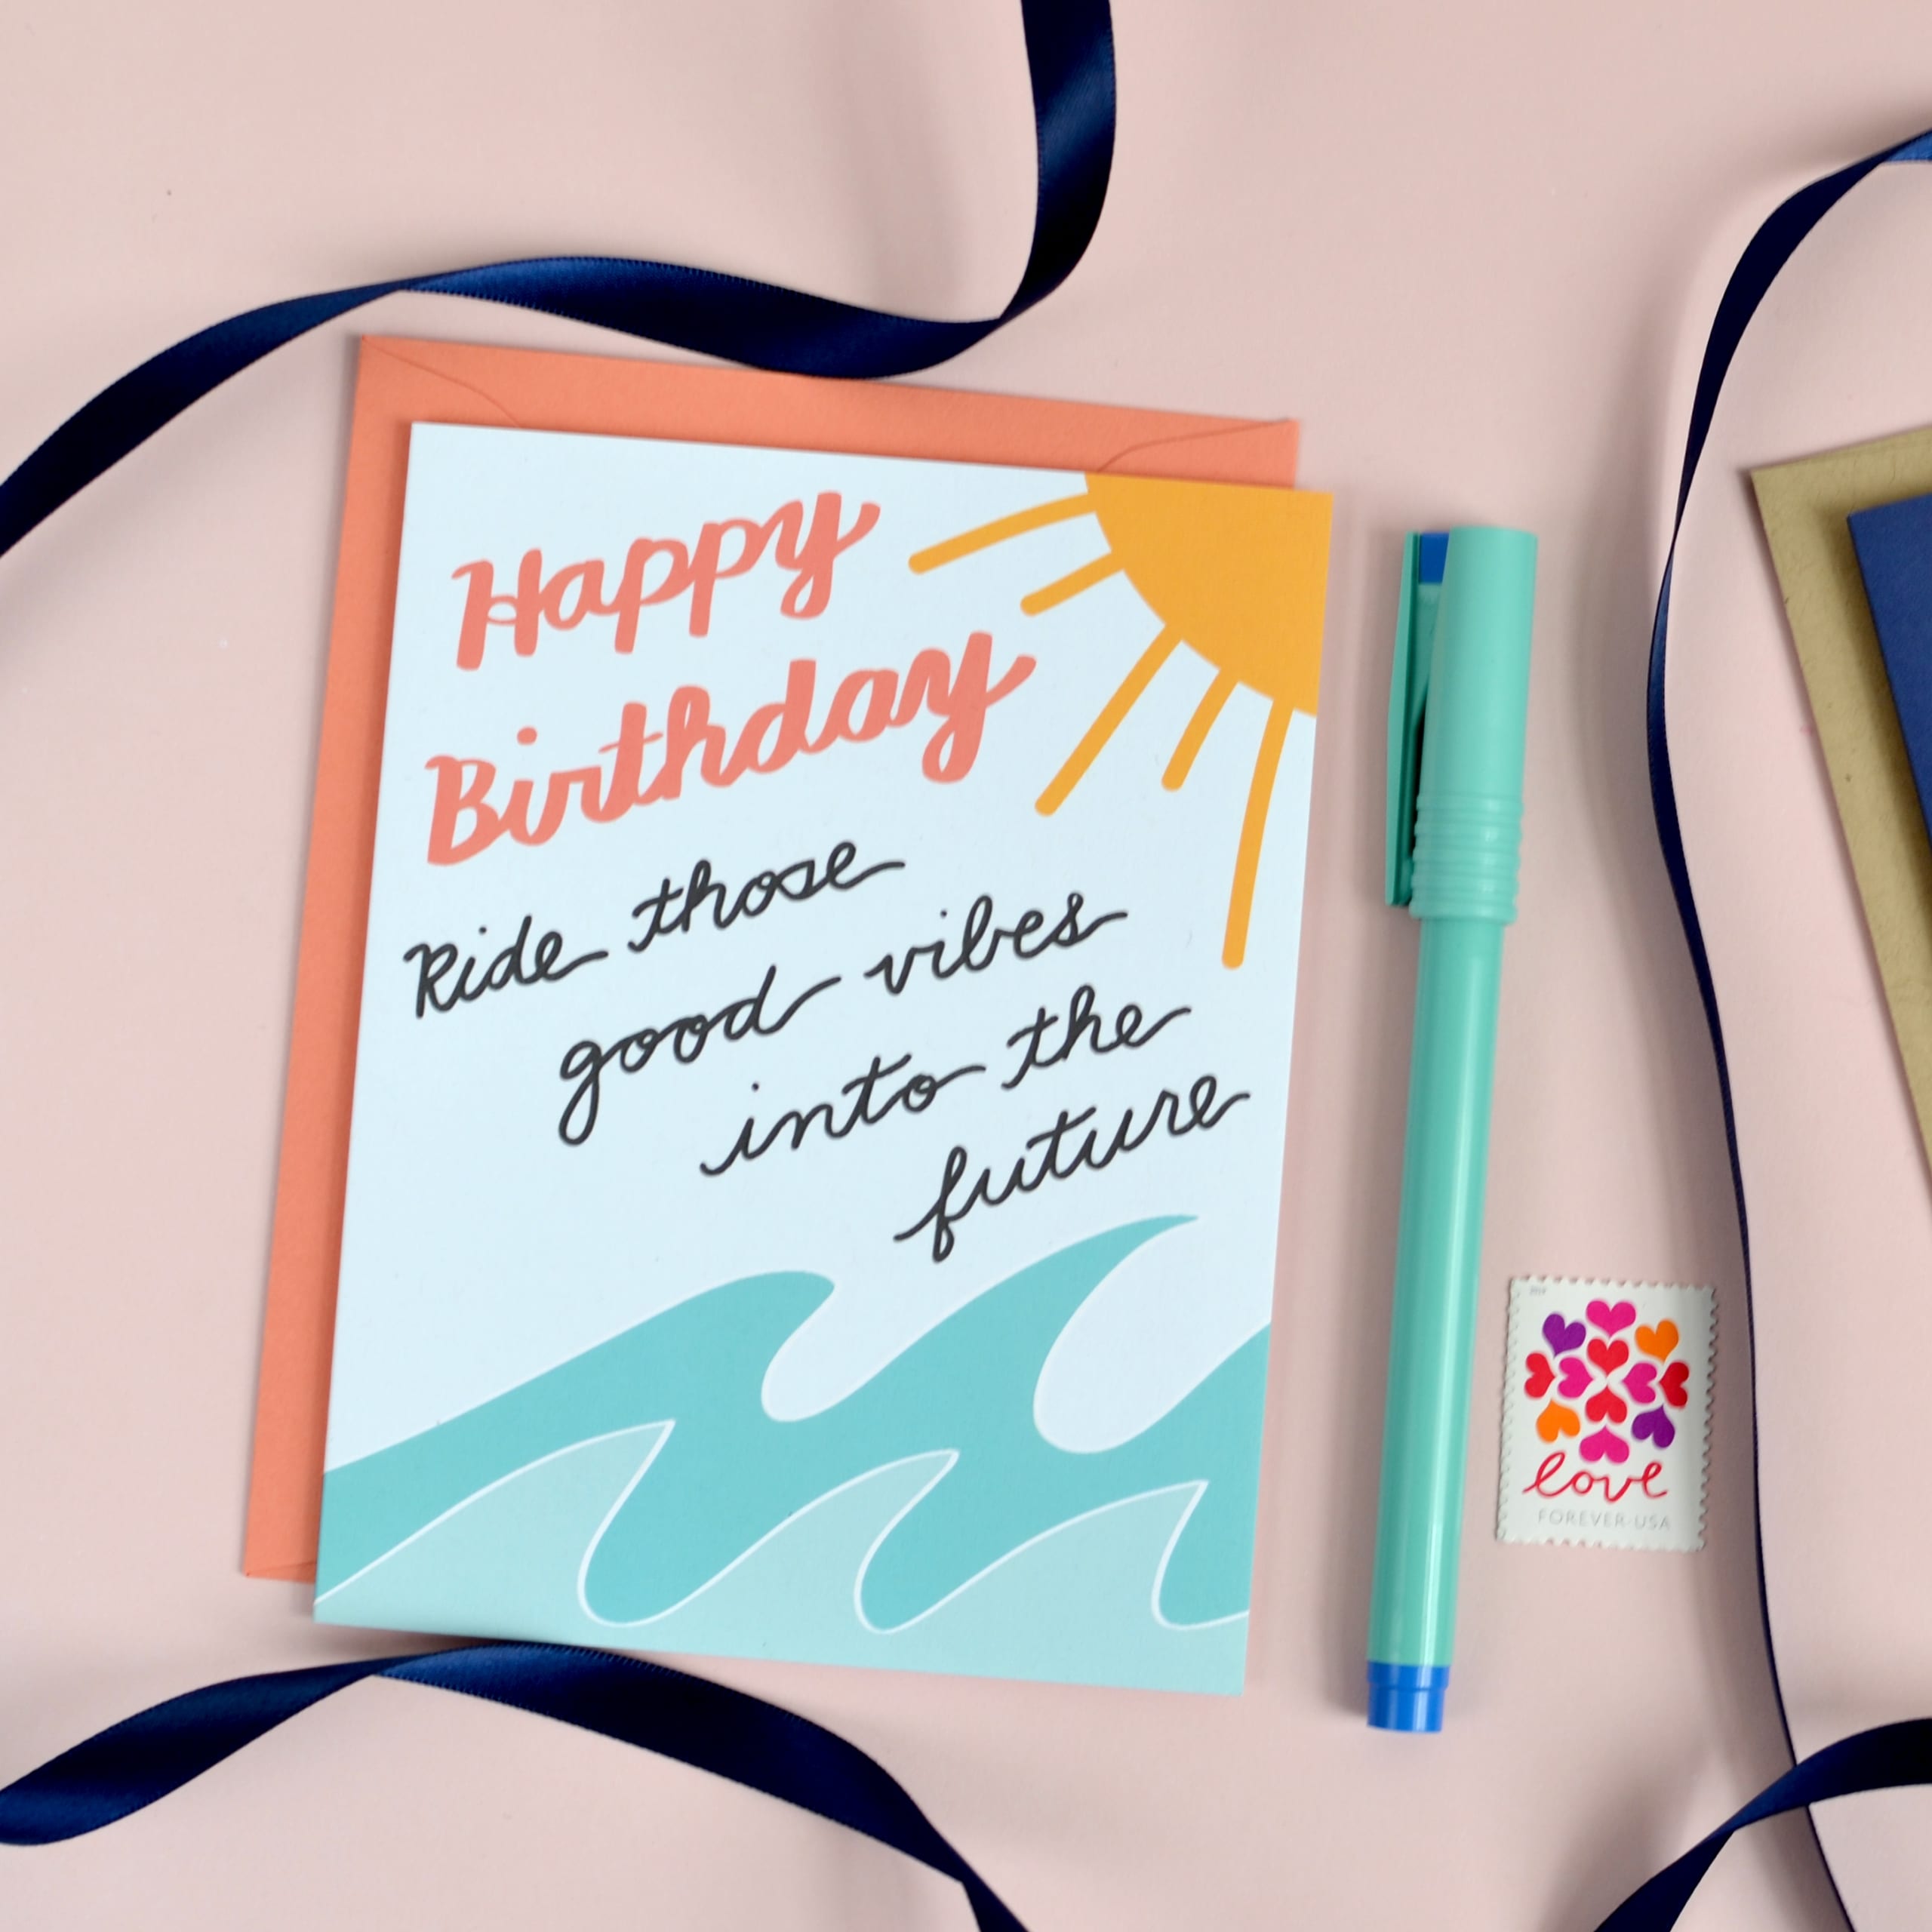 Happy
Birthday
Ride those
good vibes
into the
future
love
FOREVER USA